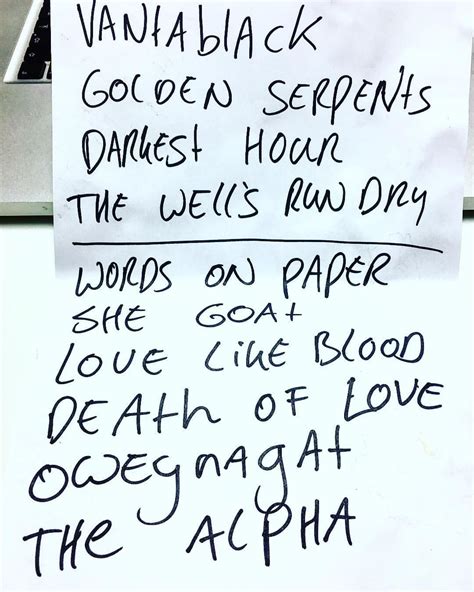 VANtAblACK
GOLDEN SERPENtS
DARKESt HOUR
THE WEll'S RUN DRY
WORDS ON PAPER
SHE GOAt
LOVE LIKE BLOOD
DEAth OF LOVE
OWEynagAt
THe ALPHA